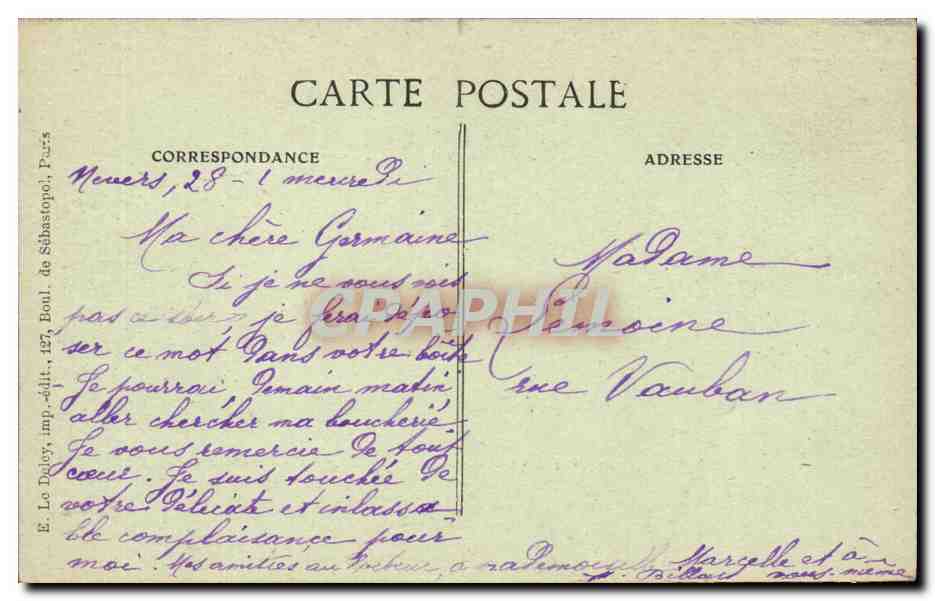 CARTE POSTALE
CORRESPONDANCE
ADRESSE
E. Le Deley, imp.-édit., 127, Boul. de Sébastopol, Paris
Nevers, 28 - 1 mercredi
Ma chère Germaine
Si je ne vous vois
pas ce soir je ferai dépo
ser ce mot dans votre boîte
- Je pourrai demain matin
aller chercher ma boucherie
Je vous remercie de tout
cœur. Je suis touchée de
votre délicate et inlassa
ble complaisance pour
moi. Mes amitiés au Docteur, à Mademoiselle Marcelle et à
vous-même
Madame
Lemoine
rue Vauban
CRAPHIL